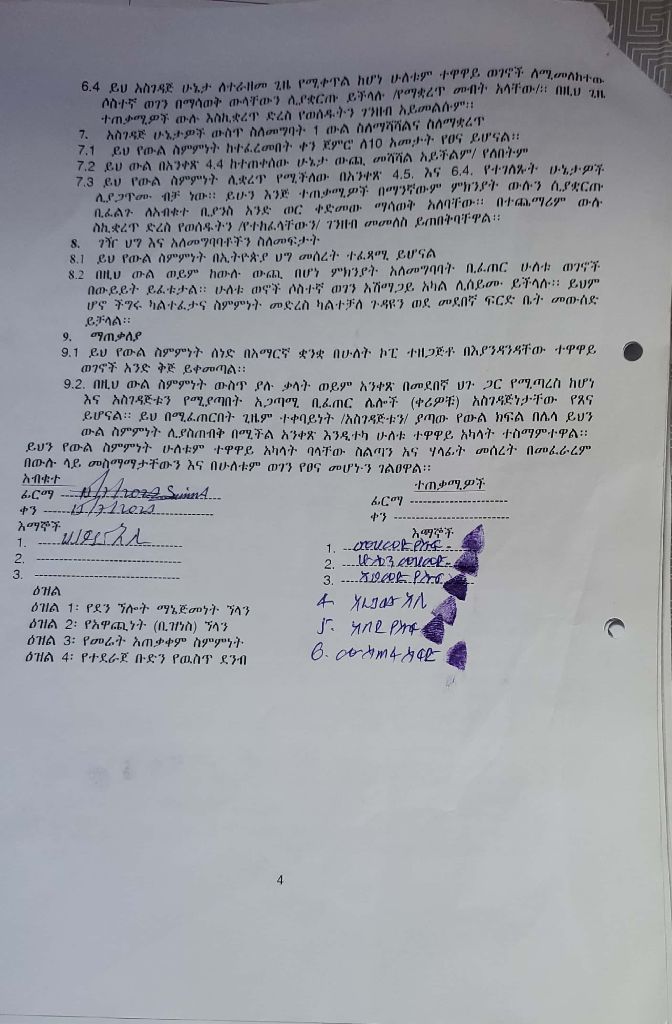 6.4 ይህ አስገዳጅ ሁኔታ ለተራዘመ ጊዜ የሚቀጥል ከሆነ ሁለቱም ተዋዋይ ወገኖች ለሚመለከተው
ሶስተኛ ወገን በማሳወቅ ውላቸውን ሊያቋርጡ ይችላሉ /የማቋረጥ መብት አላቸው/፡፡ በዚህ ጊዜ
ተጠቃሚዎች ውሉ እስኪቋረጥ ድረስ የወሰዱትን ገንዘብ አይመልሱም፡፡
7. አስገዳጅ ሁኔታዎች ውስጥ ስለመግባት 1 ውል ስለማሻሻልና ስለማቋረጥ
7.1 ይህ የውል ስምምነት ከተፈረመበት ቀን ጀምሮ ለ10 አመታት የፀና ይሆናል፡፡
7.2 ይህ ውል በአንቀጽ 4.4 ከተጠቀሰው ሁኔታ ውጪ መሻሻል አይችልም/ የለበትም
7.3 ይህ የውል ስምምነት ሊቋረጥ የሚችለው በአንቀጽ 4.5. እና 6.4. የተገለጹት ሁኔታዎች
ሲያጋጥሙ ብቻ ነው፡፡ ይሁን እንጅ ተጠቃሚዎች በማንኛውም ምክንያት ውሉን ሲያቋርጡ
ቢፈልጉ ለአብቁተ ቢያንስ አንድ ወር ቀድመው ማሳወቅ አለባቸው፡፡ በተጨማሪም ውሉ
ስኪቋረጥ ድረስ የወሰዱትን /የተከፈላቸውን/ ገንዘብ መመለስ ይጠበቅባቸዋል፡፡
8. ገዥ ህግ እና አለመግባባቶችን ስለመፍታት
8.1 ይህ የውል ስምምነት በኢትዮጵያ ህግ መሰረት ተፈጻሚ ይሆናል
8.2 በዚህ ውል ወይም ከውሉ ውጪ በሆነ ምክንያት አለመግባባት ቢፈጠር ሁለቱ ወገኖች
በውይይት ይፈቱታል፡፡ ሁለቱ ወኖች ሶስተኛ ወገን አሸማጋይ አካል ሊሰይሙ ይችላሉ፡፡ ይህም
ሆኖ ችግሩ ካልተፈታና ስምምነት መድረስ ካልተቻለ ጉዳዩን ወደ መደበኛ ፍርድ ቤት መውሰድ
ይቻላል፡፡
9. ማጠቃለያ
9.1 ይህ የውል ስምምነት ሰነድ በአማርኛ ቋንቋ በሁለት ኮፒ ተዘጋጅቶ በእያንዳንዳቸው ተዋዋይ
ወገኖች አንድ ቅጅ ይቀመጣል፡፡
9.2. በዚህ ውል ስምምነት ውስጥ ያሉ ቃላት ወይም አንቀጽ በመደበኛ ህጉ ጋር የሚጣረስ ከሆነ
እና አስገዳጅቱን የሚያጣበት አጋጣሚ ቢፈጠር ሌሎች (ቀሪዎቹ) አስገዳጅነታቸው የጸና
ይሆናል፡፡ ይህ በሚፈጠርበት ጊዜም ተቀባይነት /አስገዳጅቱን/ ያጣው የውል ክፍል በሌላ ይህን
ውል ስምምነት ሊያስጠብቅ በሚችል አንቀጽ እንዲተካ ሁለቱ ተዋዋይ አካላት ተስማምተዋል፡፡
ይህን የውል ስምምነት ሁለቱም ተዋዋይ አካላት ባላቸው ስልጣን እና ሃላፊት መሰረት በመፈራረም
በውሉ ላይ መስማማታቸውን እና በሁለቱም ወገን የፀና መሆኑን ገልፀዋል፡፡
አብቁተ
ተጠቃሚዎች
ፊርማ
ፊርማ
ቀን
ቀን
እማኞች
እማኞች
1.
1.
2.
2.
3.
3.
4.
5.
6.
ዕዝል
ዕዝል 1፡ የደን ኘሎት ማኔጅመነት ኘላን
ዕዝል 2፡ የአዋጪነት (ቢዝነስ) ኘላን
ዕዝል 3፡ የመሬት አጠቃቀም ስምምነት
ዕዝል 4፡ የተደራጀ ቡድን የዉስጥ ደንብ
4